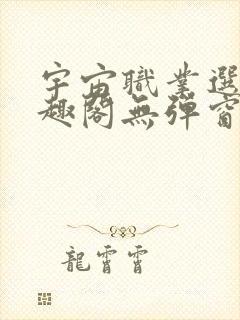 宇宙職業選
趣閣無彈窗
龍霄霄